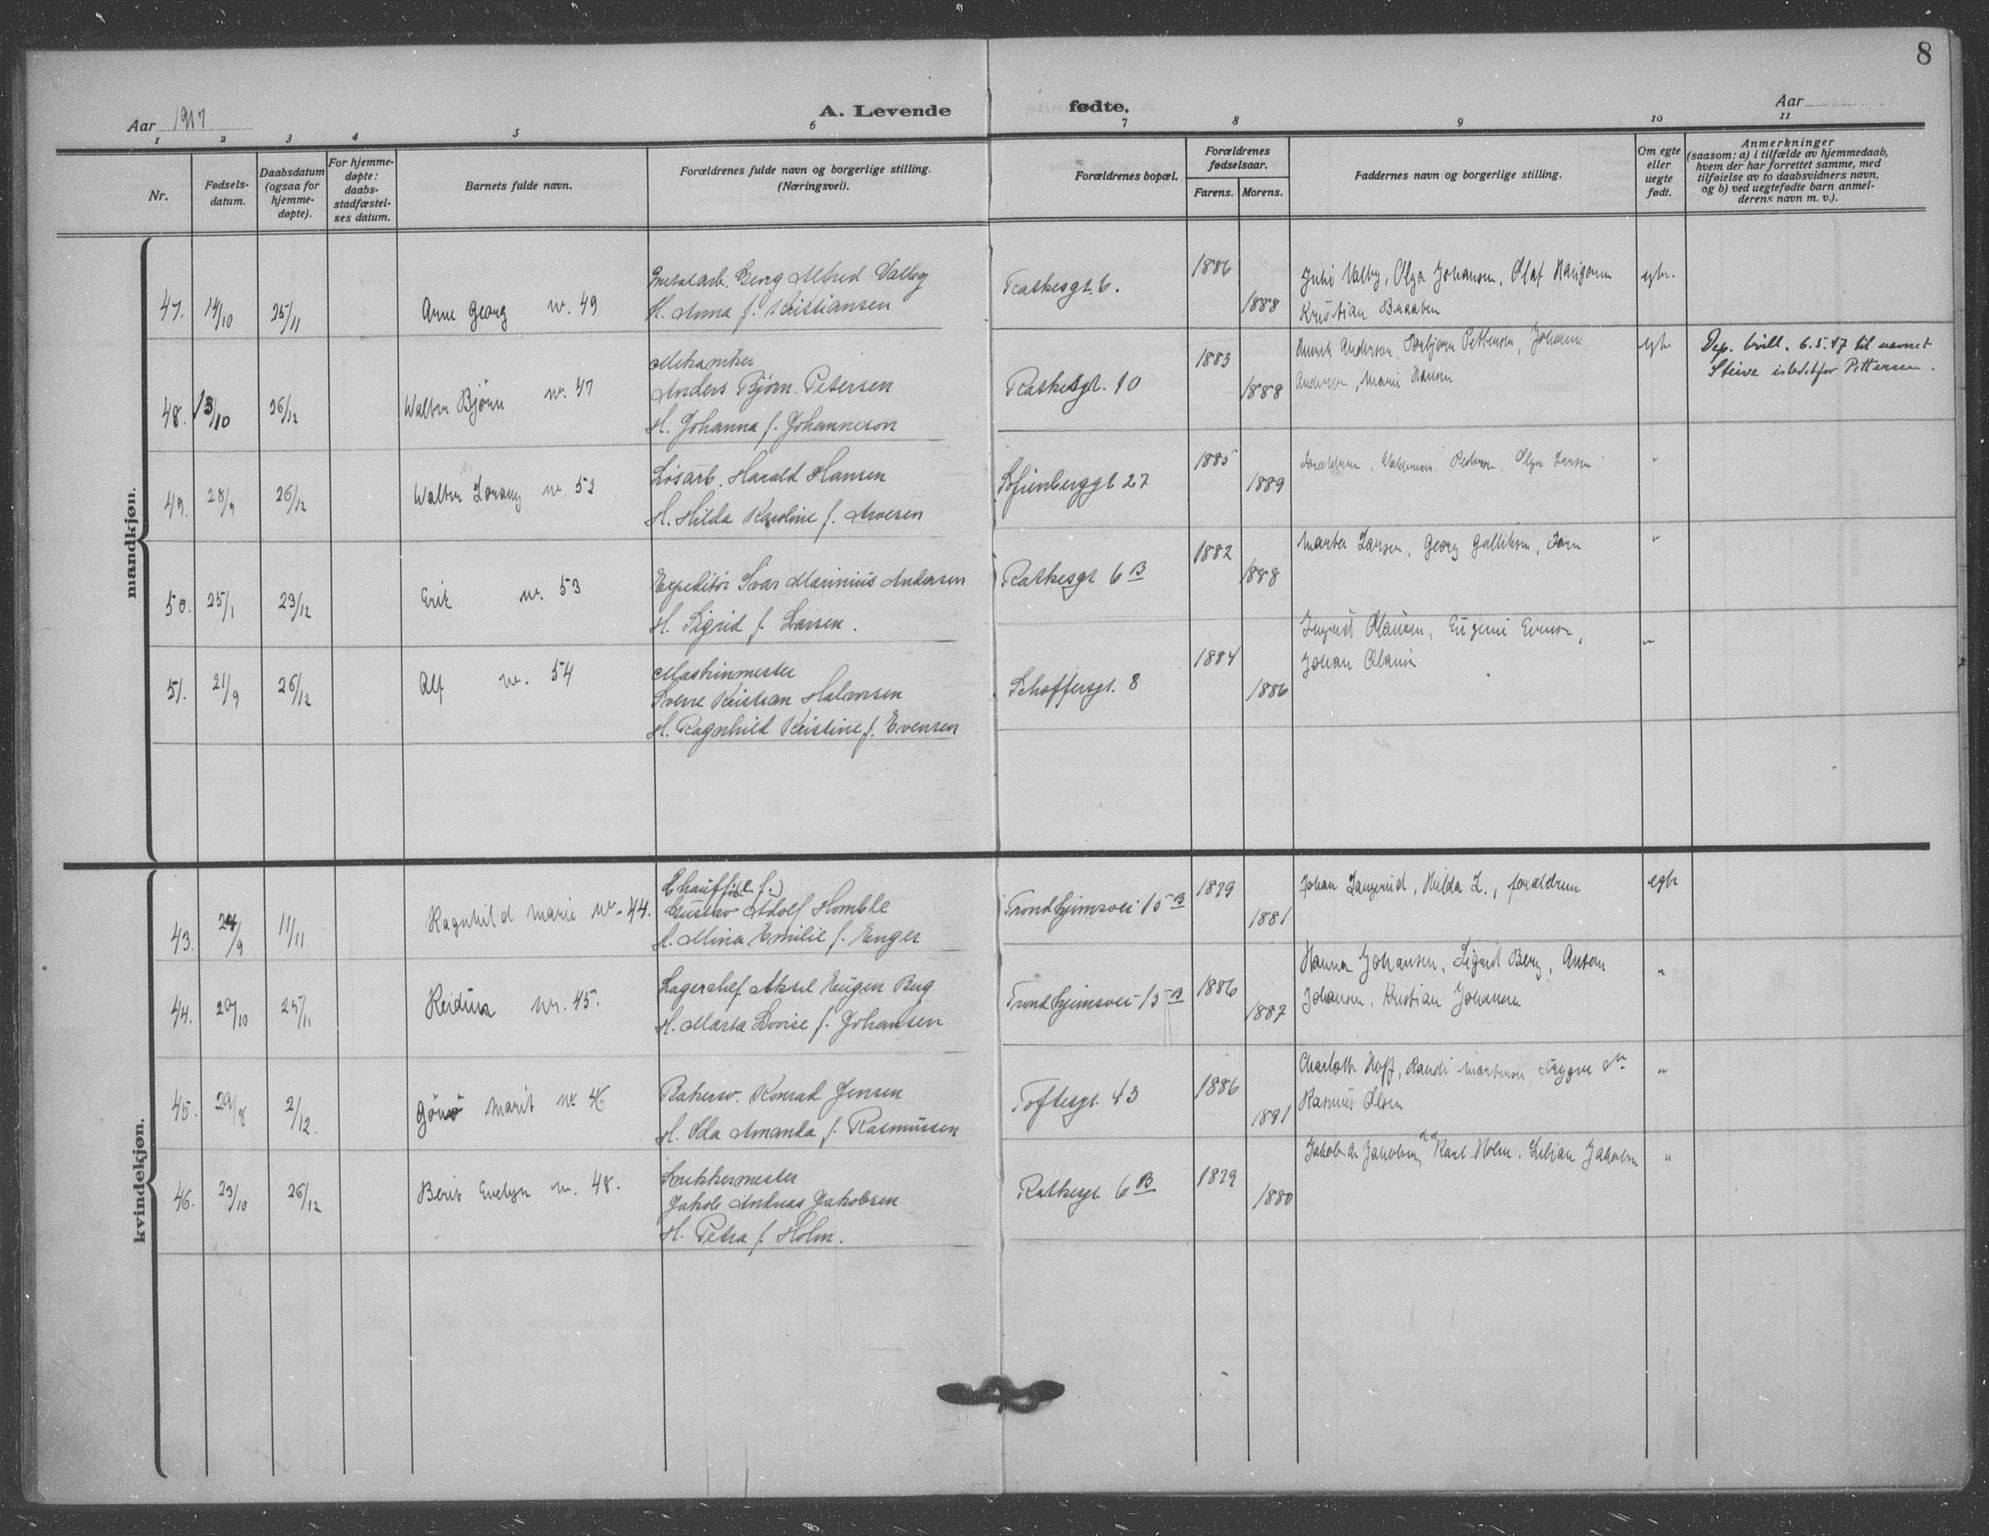 8
Aar 1917
A. Levende
fødte.
Aar
1 2 3 4 5 6 7 8 9 10 11
Nr.
Fødsels-
datum.
Daabsdatum
(ogsaa for
hjemme-
døpte).
For hjemme-
døpte:
daabs-
stadfæstel-
ses datum.
Barnets fulde navn.
Forældrenes fulde navn og borgerlige stilling.
(Næringsvei).
Forældrenes bopæl.
Forældrenes
fødselsaar.
Farens. Morens.
Faddernes navn og borgerlige stilling.
Om egte
eller
uegte
født.
Anmerkninger
(saasom: a) i tilfælde av hjemmedaab,
hvem der har forrettet samme, med
tilføielse av to daabsvidners navn,
og b) ved uegtefødte barn anmel-
derens navn m. v.).
mandkjøn.
47. 14/10 25/11 Arne Georg nr. 49
Georg Alfred Valby
H. Anna f. Kristiansen
Ratkesgt. 6. 1886 1888
Valby, Olga Johansen, Olaf
Kristian Braaten
egte.
48. 13/10 26/12 Walter Bjørn nr. 47
Mekaniker
Anders Bjørn Petersen
H. Johanna f. Johanneson
Ratkesgt. 10 1883 1888
Henrik Anderson, Torbjørn Pettersen, Johanne
Anderson, Marie Hansen
egte
Dep. bevill. 6.5.47 til navnet
Steive istedetfor Pettersen.
49. 28/9 26/12 Walter nr. 52
Løsarb. Harald Hansen
H. Hilda Karoline f. Arvesen
Sofienberggt 27 1885 1889
Forældrene, Pedersen, Olga Larsen
"
50. 25/1 23/12 Erik nr. 53
Expeditør Ivar Marinius Andersen
H. Sigrid f. Larsen.
Ratkesgt 6 B 1882 1888
Larsen, Georg
"
51. 21/9 26/12 Alf nr. 54
Maskinmester
Sverre Kristian Halvorsen
H. Ragnhild Kristine f. Evensen
Schoffersgt. 8 1884 1886
Ingrid Olausen, Eugenie Evensen,
Johan
"
kvindekjøn.
43. 24/9 11/11 Ragnhild Marie nr. 44.
Chauffør (e. f.)
Gustav Adolf Homble
H. Mina Emilie f. Enger
Trondhjemsvei 15 B 1879 1881
Johan Langerud, Hilda L., forældrene
egte
44. 20/10 25/11 Reidun nr. 45.
Lagerchef Aksel Eugen Berg
H. Marta Lovise f. Johansen
Trondhjemsvei 15 B 1886 1887
Hanna Johansen, Sigrid Berg, Anton
Johansen, Kristian Johansen
"
45. 29/8 2/12. Marit nr. 46
Konrad Jensen
H. Ida Amanda f. Rasmussen
Toftesgt. 43 1886 1891
Charlotte Hoff, Randi Martinsen, Trygve do
Rasmus Olsen
"
46. 23/10 26/12 Berit Evelyn nr. 48.
Snekkermester
Jakob Andreas Jakobsen
H. Petra f. Holm.
Ratkesgt 6 B 1879 1880
Jakob A. Jakobsen, Karl Holm, Lilian Jakobsen
"